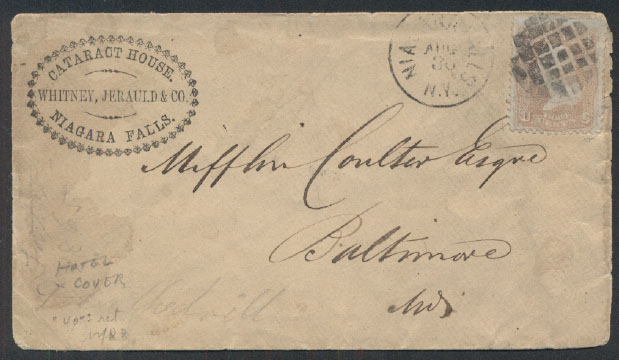 CATARACT HOUSE.
WHITNEY, JERAULD & CO.
NIAGARA FALLS.
NIA LLS
AUG
30
N.Y.
Mifflin Coulter Esqre
Baltimore
Md
HOTEL
COVER